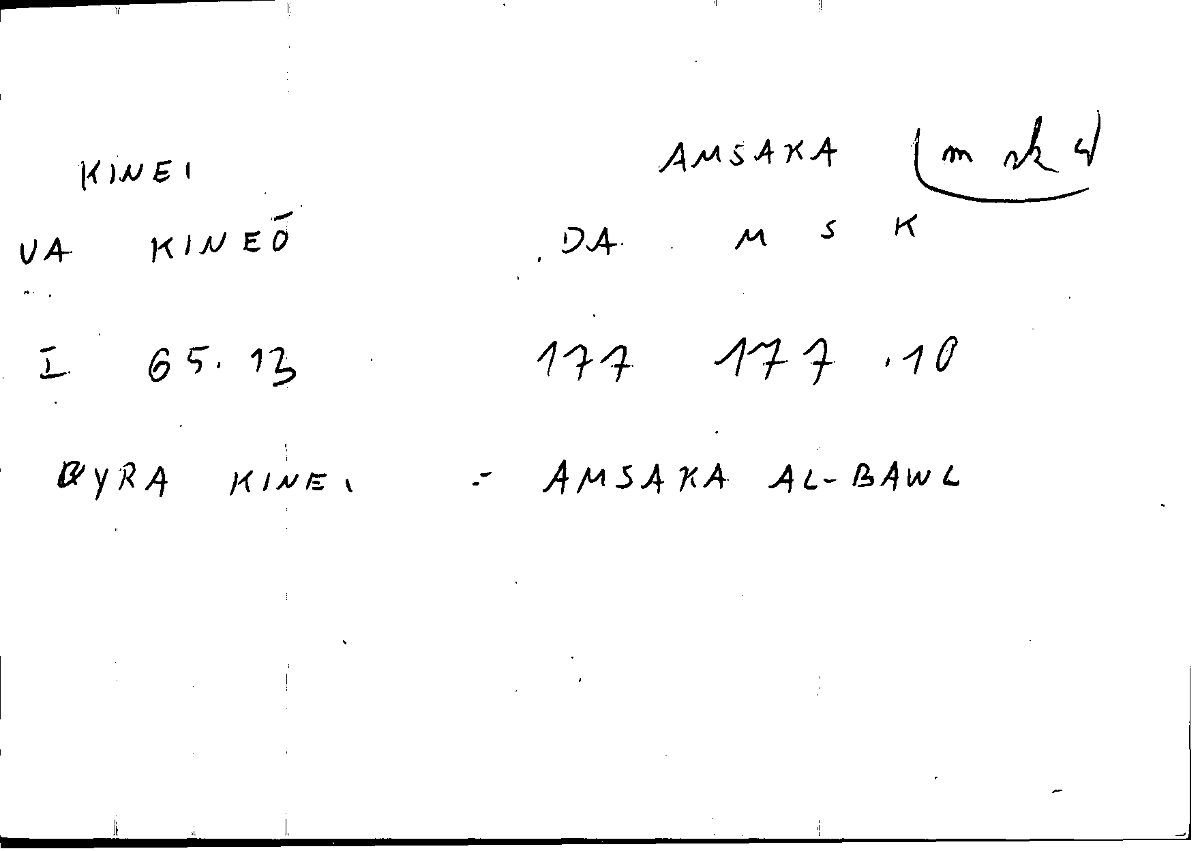 KINEI AMSAKA
VA KINEŌ DA M S K
I 65.13 177 177.10
KINEI - AMSAKA AL-BAWL